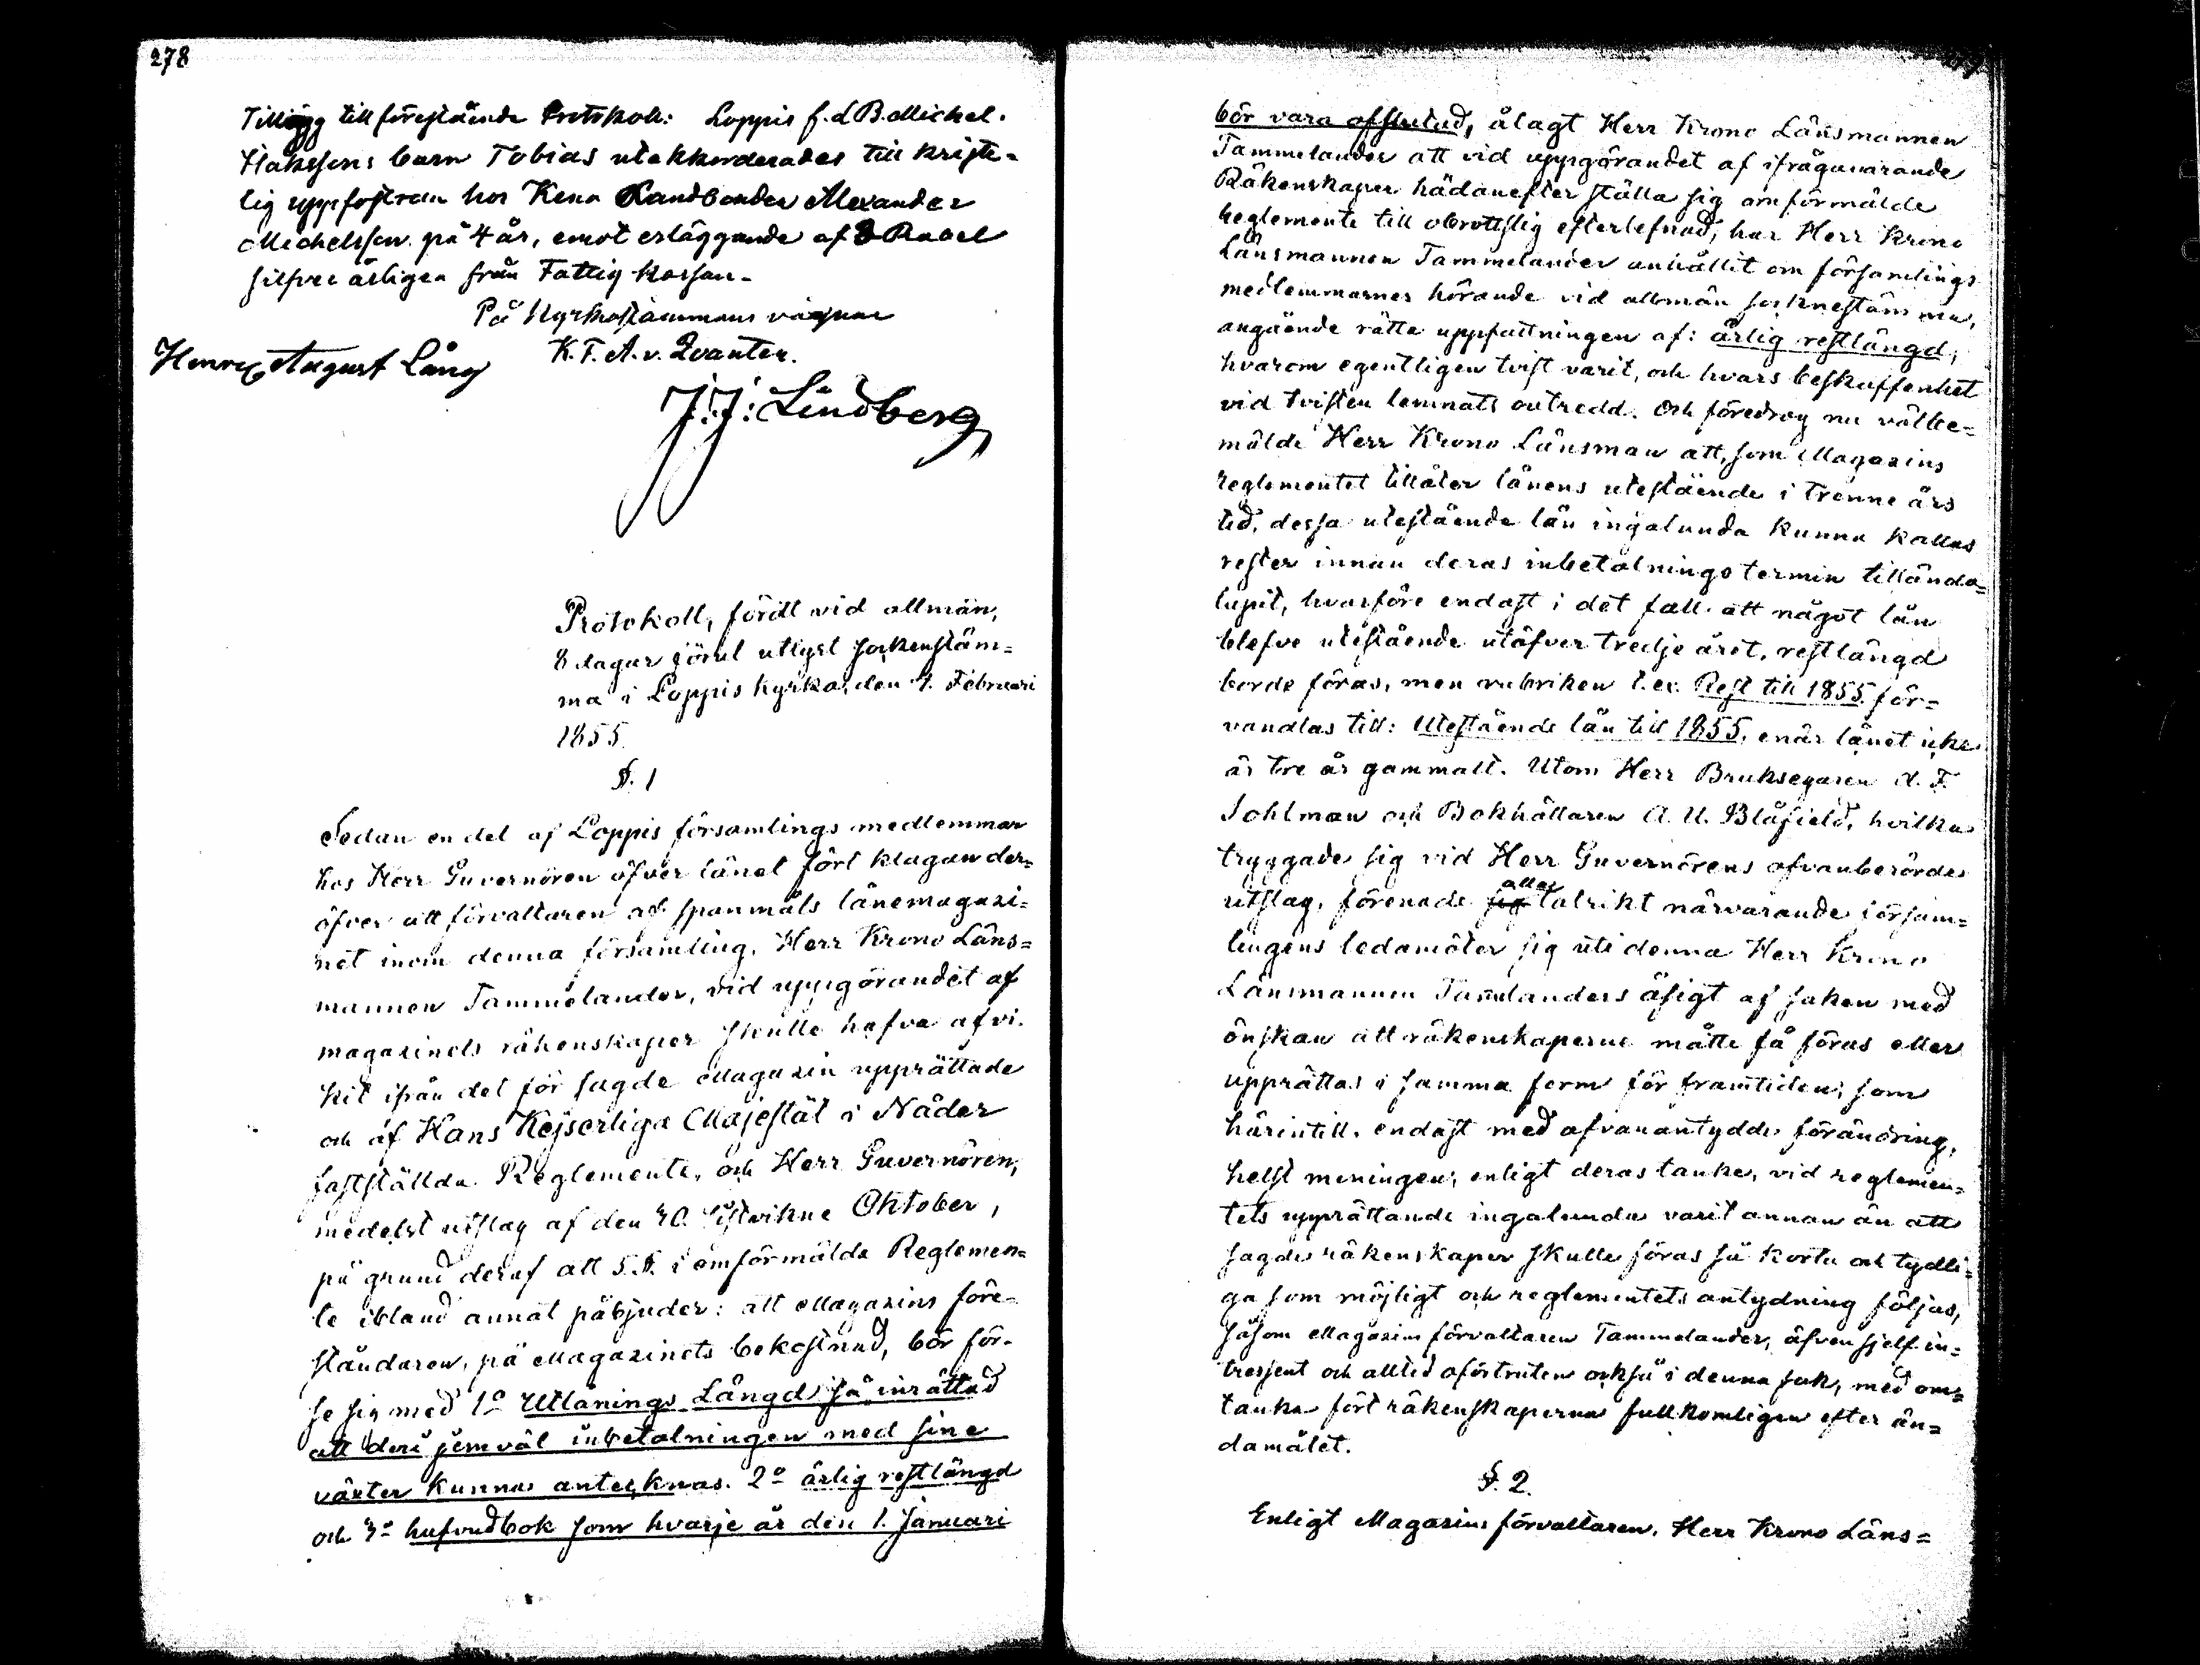 278
Tillägg till förestående Protokoll: Loppis f.d B. Michel.
Håkssons barn Tobias utackorderades till kriste-
lig uppfostran hos Kenn Landbonden Alexander
Michelsson på 4 år, emot erläggande af 8 Rubel
silfver årligen från Fattig kassan.
På Kyrkostämmans vägnar
Henric August Lång K. F. A. v. Qvanten.
J: J: Lindberg
Protokoll, fördt vid allmän,
8 dagar förut utlyst sockenstäm=
ma i Loppis kyrka, den 4. Februari
1855.
§. 1
Sedan en del af Loppis församlings medlemmar
hos Herr Guvernören öfver länet fört klagan der=
öfver att förvaltaren af spanmåls lånemagazi=
net inom denna församling, Herr Krono Läns=
mannen Tammelander, vid uppgörandet af
magazinets räkenskaper skulle hafva afvi-
kit ifrån det för sagde Magazin upprättade
och af Hans Kejserliga Majestät i Nåder
fastställda Reglemente, och Herr Guvernören,
medelst utslag af den 30. sistvikne Oktober,
på grund deraf att 5.§. i omförmälda Reglemen=
te ibland annat påbjuder: att Magazins före-
ståndaren, på Magazinets bekostnad, bör för-
se sig med 1o Utlånings Längd så inrättad
att deri jemväl inbetalningen med sine
växter kunna antecknas. 2o årlig restlängd
och 3o hufvudbok som hvarje år den 1. Januari
bör vara afslutad, ålagt Herr Krono Länsmannen
Tammelander att vid uppgörandet af ifrågavarande
Räkenskaper hädanefter ställa sig omförmälde
Reglemente till obrottslig efterlefnad, har Herr Krono
Länsmannen Tammelander anhållit om församlings
medlemmarnes hörande vid allmän socknestämma,
angående rätta uppfattningen af: årlig restlängd,
hvarom egentligen tvist varit, och hvars beskaffenhet
vid tvisten lemnats outredd. Och föredrog nu välbe=
mälde Herr Krono Länsman att, som Magazins
reglementet tillåter lånens utestående i trenne års
tid, dessa utestående lån ingalunda kunna kallas
rester innan deras inbetalnings termin tillända=
lupit, hvarföre endast i det fall att något lån
blefve utestående utöfver tredje året, restlängd
borde föras, men rubriken t.ex. Rest till 1855 för=
vandlas till: Utestående lån till 1855, enär lånet icke
är tre år gammalt. Utom Herr Bruksegaren A. F.
Sohlman och Bokhållaren A. U. Blåfield, hvilka
tryggade sig vid Herr Guvernörens ofvanberörde
utslag, förenade alla talrikt närvarande försam=
lingens ledamöter sig uti denna Herr Krono
Länsmannen Tammelanders åsigt af saken med
önskan att räkenskaperne måtte få föras eller
upprättas i samma form för framtiden, som
härintill, endast med ofvanantydde förändring,
helst meningen, enligt deras tanke, vid reglemen=
tets upprättande ingalunda varit annan än att
sagde räkenskaper skulle föras så korta och tydli=
ga som möjligt och reglementets antydning följas,
såsom Magazins förvaltaren Tammelander, äfven sjelf in=
tressent och alltid oförtruten också i denna sak, med om=
tanka fört räkenskaperna fullkomligen efter än=
damålet.
§. 2.
Enligt Magazins förvaltaren, Herr Krono Läns=